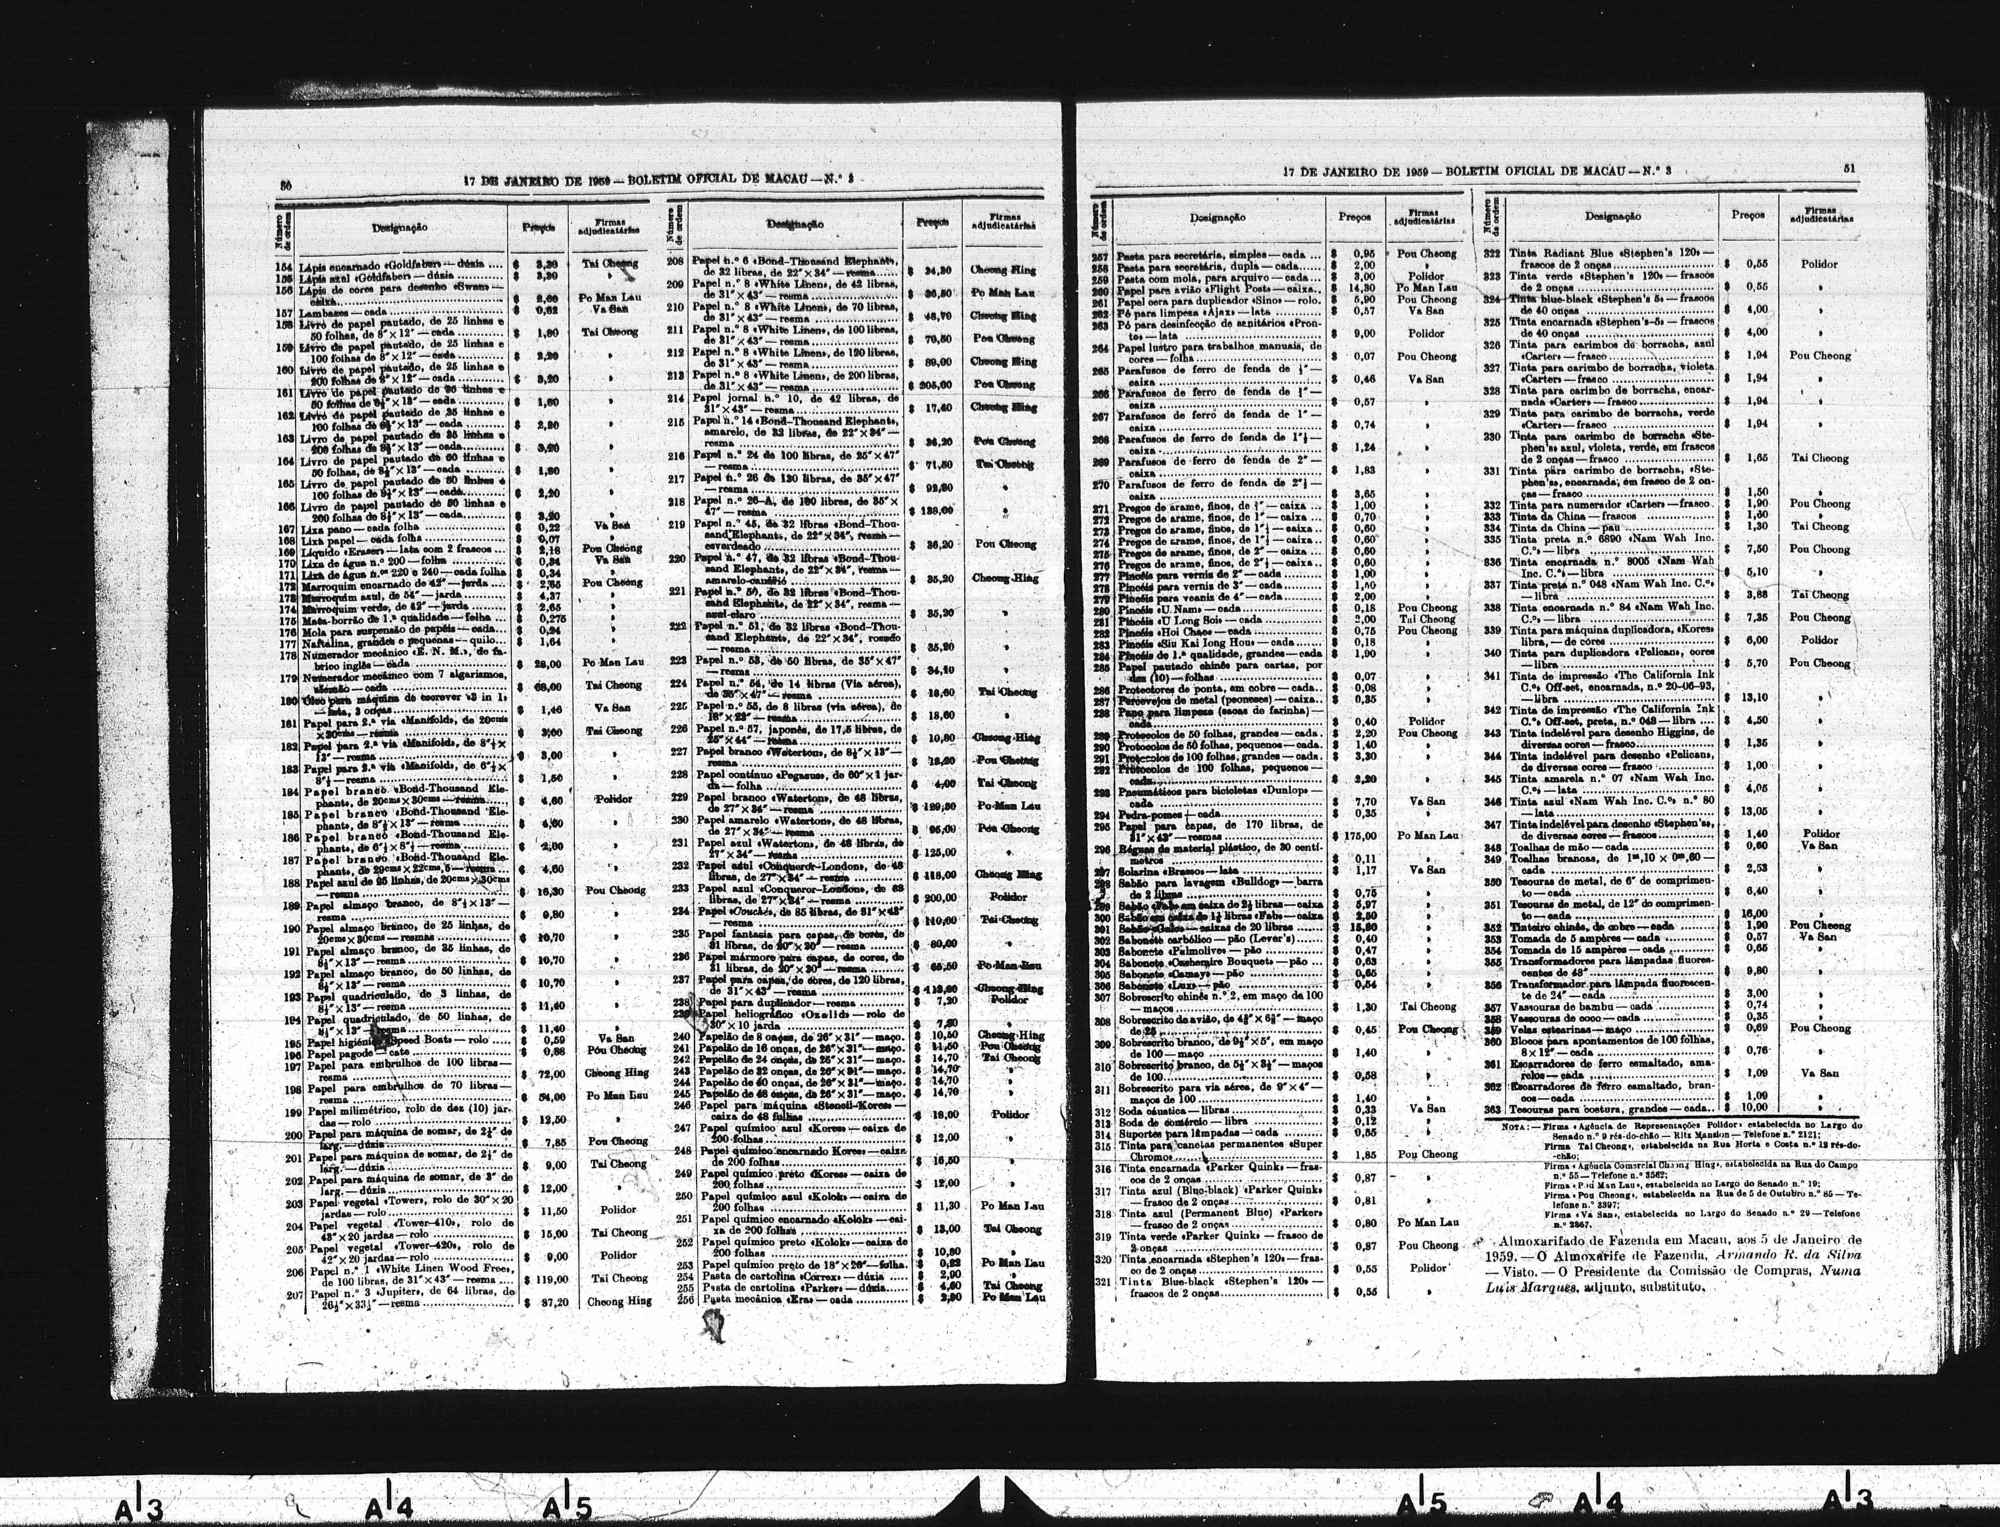 50
17 DE JANEIRO DE 1959 — BOLETIM OFICIAL DE MACAU — N.º 3
Número de ordem
Designação
Preços
Firmas adjudicatárias
154 Lápis encarnado «Goldfaber» — dúzia .... $ 3,30 Tai Cheong
155 Lápis azul «Goldfaber» — dúzia $ 3,30 »
156 Lápis de cores para desenho «Swan» —
caixa $ 2,60 Po Man Lau
157 Lambazes — cada $ 0,62 Va San
158 Livro de papel pautado, de 25 linhas e
50 folhas, de 8″×12″ — cada $ 1,80 Tai Cheong
159 Livro de papel pautado, de 25 linhas e
100 folhas de 8″×12″ — cada $ 2,20 »
160 Livro de papel pautado, de 25 linhas e
200 folhas de 8″×12″ — cada $ 3,20 »
161 Livro de papel pautado de 35 linhas e
50 folhas de 8½″×13″ — cada $ 1,80 »
162 Livro de papel pautado de 35 linhas e
100 folhas de 8½″×13″ — cada $ 2,20 »
163 Livro de papel pautado de 35 linhas e
200 folhas de 8½″×13″ — cada $ 3,20 »
164 Livro de papel pautado de 50 linhas e
50 folhas, de 8½″×13″ — cada $ 1,80 »
165 Livro de papel pautado de 50 linhas e
100 folhas de 8½″×13″ — cada $ 2,20 »
166 Livro de papel pautado de 50 linhas e
200 folhas de 8½″×13″ — cada $ 3,20 »
167 Lixa pano — cada folha $ 0,22 Va San
168 Lixa papel — cada folha $ 0,07 »
169 Líquido «Eraser» — lata com 2 frascos ... $ 2,18 Pou Cheong
170 Lixa de água n.º 200 — folha $ 0,34 Va San
171 Lixa de água n.ºs 220 e 240 — cada folha $ 0,34 »
172 Marroquim encarnado de 42″ — jarda $ 2,65 Pou Cheong
173 Marroquim azul, de 54″ — jarda $ 4,37 »
174 Marroquim verde, de 42″ — jarda $ 2,65 »
175 Mata-borrão de 1.ª qualidade — folha ... $ 0,275 »
176 Mola para suspensão de papéis — cada ... $ 0,24 »
177 Naftalina, grandes e pequenas — quilo ... $ 1,64 »
178 Numerador mecânico «E. N. M.», de fa-
brico inglês — cada $ 28,00 Po Man Lau
179 Numerador mecânico com 7 algarismos,
alemão — cada $ 68,00 Tai Cheong
180 Óleo para máquina de escrever «3 in 1»
— lata, 3 onças $ 1,46 Va San
181 Papel para 2.ª via «Manifold», de 20cms
×30cms — resma $ 3,00 Tai Cheong
182 Papel para 2.ª via «Manifold», de 8″½×
13″ — resma $ 3,00 »
183 Papel para 2.ª via «Manifold», de 6″½×
8″½ — resma $ 1,50 »
184 Papel branco «Bond-Thousand Ele-
phant», de 20cms×30cms — resma $ 4,60 Polidor
185 Papel branco «Bond-Thousand Ele-
phant», de 8″½×13″ — resma $ 4,60 »
186 Papel branco «Bond-Thousand Ele-
phant», de 6″½×8″½ — resma $ 2,00 »
187 Papel branco «Bond-Thousand Ele-
phant», de 29cms×22cms,5 — resma $ 4,60 »
188 Papel azul de 25 linhas, de 20cms×30cms
— resma $ 16,30 Pou Cheong
189 Papel almaço branco, de 8″½×13″ —
resma $ 9,80 »
190 Papel almaço branco, de 25 linhas, de
20cms×30cms — resmas $ 10,70 »
191 Papel almaço branco, de 35 linhas, de
8½″×13″ — resma $ 10,70 »
192 Papel almaço branco, de 50 linhas, de
8½″×13″ — resma $ 10,70 »
193 Papel quadriculado, de 3 linhas, de
8½″×13″ — resma $ 11,40 »
194 Papel quadriculado, de 50 linhas, de
8½″×13″ — resma $ 11,40 »
195 Papel higiénico «Speed Boat» — rolo $ 0,59 Va San
196 Papel pagode — cate $ 0,88 Pou Cheong
197 Papel para embrulhos de 100 libras —
resma $ 72,00 Cheong Hing
198 Papel para embrulhos de 70 libras —
resma $ 54,00 Po Man Lau
199 Papel milimétrico, rolo de dez (10) jar-
das — rolo $ 12,50 »
200 Papel para máquina de somar, de 2¼″ de
larg. — dúzia $ 7,85 Pou Cheong
201 Papel para máquina de somar, de 2½″ de
larg. — dúzia $ 9,00 Tai Cheong
202 Papel para máquina de somar, de 3″ de
larg. — dúzia $ 12,00 »
203 Papel vegetal «Tower», rolo de 30″×20
jardas — rolo $ 11,50 Polidor
204 Papel vegetal «Tower-410», rolo de
43″×20 jardas — rolo $ 15,00 Tai Cheong
205 Papel vegetal «Tower-420», rolo de
42″×20 jardas — rolo $ 9,00 Polidor
206 Papel n.º 1 «White Linen Wood Free»,
de 100 libras, de 31″×43″ — resma .... $ 119,00 Tai Cheong
207 Papel n.º 3 «Jupiter», de 64 libras, de
26¼″×33½″ — resma $ 87,20 Cheong Hing
Número de ordem
Designação
Preços
Firmas adjudicatárias
208 Papel n.º 6 «Bond-Thousand Elephant»,
de 32 libras, de 22″×34″ — resma $ 34,30 Cheong Hing
209 Papel n.º 8 «White Linen», de 42 libras,
de 31″×43″ — resma $ 36,50 Po Man Lau
210 Papel n.º 8 «White Linen», de 70 libras,
de 31″×43″ — resma $ 48,70 Cheong Hing
211 Papel n.º 8 «White Linen», de 100 libras,
de 31″×43″ — resma $ 70,50 Pou Cheong
212 Papel n.º 8 «White Linen», de 120 libras,
de 31″×43″ — resma $ 89,00 Cheong Hing
213 Papel n.º 8 «White Linen», de 200 libras,
de 31″×43″ — resma $ 205,60 Pou Cheong
214 Papel jornal n.º 10, de 42 libras, de
31″×43″ — resma $ 17,40 Cheong Hing
215 Papel n.º 14 «Bond-Thousand Elephant»,
amarelo, de 32 libras, de 22″×34″ —
resma $ 36,20 Pou Cheong
216 Papel n.º 24 de 100 libras, de 25″×47″
— resma $ 71,50 Tai Cheong
217 Papel n.º 26 de 130 libras, de 35″×47″
— resma $ 92,80 »
218 Papel n.º 26-A, de 180 libras, de 35″×
47″ — resma $ 138,00 »
219 Papel n.º 45, de 32 libras «Bond-Thou-
sand Elephant», de 22″×34″, resma —
esverdeado $ 36,20 Pou Cheong
220 Papel n.º 47, de 32 libras «Bond-Thou-
sand Elephant», de 22″×34″, resma —
amarelo-canário $ 35,20 Cheong Hing
221 Papel n.º 50, de 32 libras «Bond-Thou-
sand Elephant», de 22″×34″, resma —
azul-claro $ 35,20 »
222 Papel n.º 51, de 32 libras «Bond-Thou-
sand Elephant», de 22″×34″, rosado
— resma $ 35,20 »
223 Papel n.º 53, de 50 libras, de 35″×47″
— resma $ 34,10 »
224 Papel n.º 54, de 14 libras (Via aérea),
de 35″×47″ — resma $ 18,60 Tai Cheong
225 Papel n.º 55, de 8 libras (via aérea), de
18″×23″ — resma $ 18,60 »
226 Papel n.º 57, japonês, de 17,5 libras, de
25″×44″ — resma $ 10,80 Cheong Hing
227 Papel branco «Waterton», de 8½″×13″ —
resma $ 12,20 Pou Cheong
228 Papel contínuo «Pegasus», de 60″×1 jar-
da — folha $ 4,00 Tai Cheong
229 Papel branco «Waterton», de 48 libras,
de 27″×34″ — resma $ 129,30 Po Man Lau
230 Papel amarelo «Waterton», de 48 libras,
de 27″×34″ — resma $ 95,00 Pou Cheong
231 Papel azul «Waterton», de 48 libras, de
27″×34″ — resma $ 125,00 »
232 Papel azul «Conqueror-London», de 48
libras, de 27″×34″ — resma $ 118,00 Cheong Hing
233 Papel azul «Conqueror-London», de 68
libras, de 27″×34″ — resma $ 200,00 Polidor
234 Papel «Couché», de 85 libras, de 31″×43″
— resma $ 110,00 Tai Cheong
235 Papel fantasia para capas, de cores, de
31 libras, de 20″×30″ — resma $ 80,00 »
236 Papel mármore para capas, de cores, de
31 libras, de 20″×30″ — resma $ 65,50 Po Man Lau
237 Papel para capas, de cores, de 120 libras,
de 31″×43″ — resma $ 113,60 Cheong Hing
238 Papel para duplicador — resma $ 7,20 Polidor
239 Papel heliográfico «Ozalid» — rolo de
30″×10 jarda $ 7,20 »
240 Papelão de 8 onças, de 26″×31″ — maço. $ 10,50 Cheong Hing
241 Papelão de 16 onças, de 26″×31″ — maço. $ 11,50 Pou Cheong
242 Papelão de 24 onças, de 26″×31″ — maço. $ 14,70 Tai Cheong
243 Papelão de 32 onças, de 26″×31″ — maço. $ 14,70 »
244 Papelão de 40 onças, de 26″×31″ — maço. $ 14,70 »
245 Papelão de 48 onças, de 26″×31″ — maço. $ 14,70 »
246 Papel para máquina «Stencil-Kores» —
caixa de 48 folhas $ 18,00 Polidor
247 Papel químico azul «Kores» — caixa de
200 folhas $ 12,00 »
248 Papel químico encarnado Kores» — caixa
de 200 folhas $ 16,50 »
249 Papel químico preto «Kores» — caixa de
200 folhas $ 12,00 »
250 Papel químico azul «Kolok» — caixa de
200 folhas $ 11,30 Po Man Lau
251 Papel químico encarnado «Kolok» — cai-
xa de 200 folhas $ 13,00 Tai Cheong
252 Papel químico preto «Kolok» — caixa de
200 folhas $ 10,80 »
253 Papel químico preto de 18″×26″ — folha. $ 0,22 Po Man Lau
254 Pasta de cartolina «Correx» — dúzia $ 2,90 »
255 Pasta de cartolina «Parker» — dúzia $ 4,60 Tai Cheong
256 Pasta mecânica «Era» — cada $ 2,80 Po Man Lau
17 DE JANEIRO DE 1959 — BOLETIM OFICIAL DE MACAU — N.º 3
51
Número de ordem
Designação
Preços
Firmas adjudicatárias
257 Pasta para secretária, simples — cada ... $ 0,95 Pou Cheong
258 Pasta para secretária, dupla — cada $ 2,00 »
259 Pasta com mola, para arquivo — cada ... $ 3,00 Polidor
260 Papel para avião «Flight Post» — caixa.. $ 14,30 Po Man Lau
261 Papel cera para duplicador «Sino» — rolo. $ 5,90 Pou Cheong
262 Pó para limpeza «Ajax» — lata $ 0,57 Va San
263 Pó para desinfecção de sanitários «Pron-
to» — lata $ 9,00 Polidor
264 Papel lustro para trabalhos manuais, de
cores — folha $ 0,07 Pou Cheong
265 Parafusos de ferro de fenda de ½″ —
caixa $ 0,46 Va San
266 Parafusos de ferro de fenda de ¾″ —
caixa $ 0,57 »
267 Parafusos de ferro de fenda de 1″ —
caixa $ 0,74 »
268 Parafusos de ferro de fenda de 1″½ —
caixa $ 1,24 »
269 Parafusos de ferro de fenda de 2″ —
caixa $ 1,83 »
270 Parafusos de ferro de fenda de 2″½ —
caixa $ 3,65 »
271 Pregos de arame, finos, de ¾″ — caixa ... $ 1,00 »
272 Pregos de arame, finos, de 1″ — caixa ... $ 0,70 »
273 Pregos de arame, finos, de 1″¼ — caixa .. $ 0,60 »
274 Pregos de arame, finos, de 1″½ — caixa .. $ 0,60 »
275 Pregos de arame, finos, de 2″ — caixa ... $ 0,60 »
276 Pregos de arame, finos, de 2″½ — caixa .. $ 0,60 »
277 Pincéis para verniz de 2″ — cada $ 1,00 »
278 Pincéis para verniz de 3″ — cada $ 1,50 »
279 Pincéis para veaniz de 4″ — cada $ 2,00 »
280 Pincéis «U Nam» — cada $ 0,18 Pou Cheong
281 Pincéis «U Long Soi» — cada $ 2,00 Tai Cheong
282 Pincéis «Hoi Chao» — cada $ 0,75 Pou Cheong
283 Pincéis «Siu Kai Iong Hou» — cada $ 0,18 »
284 Pincéis de 1.ª qualidade, grandes — cada $ 1,90 »
285 Papel pautado chinês para cartas, por
dez (10) — folhas $ 0,07 »
286 Protectores de ponta, em cobre — cada.. $ 0,08 »
287 Percevejos de metal (peoneses) — caixa.. $ 0,35 »
288 Pano para limpeza (sacos de farinha) —
cada $ 0,40 Polidor
289 Protocolos de 50 folhas, grandes — cada. $ 2,20 Pou Cheong
290 Protocolos de 50 folhas, pequenos — cada. $ 1,40 »
291 Protocolos de 100 folhas, grandes — cada. $ 3,30 »
292 Protocolos de 100 folhas, pequenos —
cada $ 2,20 »
293 Pneumáticos para bicicletas «Dunlop» —
cada $ 7,70 Va San
294 Pedra-pomes — cada $ 0,35 »
295 Papel para capas, de 170 libras, de
31″×43″ — resmas $ 175,00 Po Man Lau
296 Réguas de material plástico, de 30 centí-
metros $ 0,11 »
297 Solarina «Brasso» — lata $ 1,17 Va San
298 Sabão para lavagem «Bulldog» — barra
de 2 libras $ 0,75 »
299 Sabão «Fab» em caixa de 2½ libras — caixa $ 5,97 »
300 Sabão em caixa de 1¼ libras «Fab» — caixa $ 2,50 »
301 Sabão «Galo» — caixas de 20 libras $ 15,80 »
302 Sabonete carbólico — pão (Lever's) $ 0,40 »
303 Sabonete «Palmolive» — pão $ 0,47 »
304 Sabonete «Cashemire Bouquet» — pão ... $ 0,63 »
305 Sabonete «Camay» — pão $ 0,65 »
306 Sabonete «Lux» — pão $ 0,54 »
307 Sobrescrito chinês n.º 2, em maço de 100
— maços $ 1,30 Tai Cheong
308 Sobrescrito de avião, de 4¾″×6¾″ — maço
de 25 $ 0,45 Pou Cheong
309 Sobrescrito branco, de 9½″×5″, em maço
de 100 — maço $ 1,40 »
310 Sobrescrito branco, de 5½″×3½″ — maços
de 100 $ 0,58 »
311 Sobrescrito para via aérea, de 9″×4″ —
maços de 100 $ 1,40 »
312 Soda cáustica — libras $ 0,33 Va San
313 Soda de comércio — libra $ 0,12 »
314 Suportes para lâmpadas — cada $ 0,55 »
315 Tinta para canetas permanentes «Super
Chrome» $ 1,85 Pou Cheong
316 Tinta encarnada «Parker Quink» — fras-
cos de 2 onças $ 0,87 »
317 Tinta azul (Blue-black) «Parker Quink»
— frasco de 2 onças $ 0,81 »
318 Tinta azul (Permanent Blue) «Parker»
— frasco de 2 onças $ 0,80 Po Man Lau
319 Tinta verde «Parker Quink» — frasco de
2 onças $ 0,87 Pou Cheong
320 Tinta encarnada «Stephen's 120» — fras-
co de 2 onças $ 0,55 Polidor
321 Tinta Blue-black «Stephen's 120» —
frascos de 2 onças $ 0,55 »
Número de ordem
Designação
Preços
Firmas adjudicatárias
322 Tinta Radiant Blue «Stephen's 120» —
frascos de 2 onças $ 0,55 Polidor
323 Tinta verde «Stephen's 120» — frascos
de 2 onças $ 0,55 »
324 Tinta blue-black «Stephen's 5» — frascos
de 40 onças $ 4,00 »
325 Tinta encarnada «Stephen's-5» — frascos
de 40 onças $ 4,00 »
326 Tinta para carimbos de borracha, azul
«Carter» — frasco $ 1,94 Pou Cheong
327 Tinta para carimbo de borracha, violeta
«Carter» — frasco $ 1,94 »
328 Tinta para carimbo de borracha, encar-
nada «Carter» — frasco $ 1,94 »
329 Tinta para carimbo de borracha, verde
«Carter» — frasco $ 1,94 »
330 Tinta para carimbo de borracha «Ste-
phen's» azul, violeta, verde, em frascos
de 2 onças — frasco $ 1,65 Tai Cheong
331 Tinta para carimbo de borracha, «Ste-
phen's», encarnada, em frasco de 2 on-
ças — frasco $ 1,50 »
332 Tinta para numerador «Carter» — frasco. $ 1,90 Pou Cheong
333 Tinta da China — frascos $ 1,60 »
334 Tinta da China — pau $ 1,30 Tai Cheong
335 Tinta preta n.º 6890 «Nam Wah Inc.
C.º» — libra $ 7,50 Pou Cheong
336 Tinta encarnada n.º 8005 «Nam Wah
Inc. C.º» — libra $ 5,10 »
337 Tinta preta n.º 048 «Nam Wah Inc. C.º»
— libra $ 3,88 Tai Cheong
338 Tinta encarnada n.º 84 «Nam Wah Inc.
C.º» — libra $ 7,35 Pou Cheong
339 Tinta para máquina duplicadora, «Kores»
libra, — de côres $ 6,00 Polidor
340 Tinta para duplicadora «Pelican», cores
— libra $ 5,70 Pou Cheong
341 Tinta de impressão «The California Ink
C.º» Off-set, encarnada, n.º 20-06-93,
— libra $ 13,10 »
342 Tinta de impressão «The California Ink
C.º» Off-set, preta, n.º 048 — libra .... $ 4,50 »
343 Tinta indelével para desenho Higgins, de
diversas cores — frasco $ 1,35 »
344 Tinta indelével para desenho «Pelican»,
de diversas cores — frasco $ 1,00 »
345 Tinta amarela n.º 07 «Nam Wah Inc.
C.º» — lata $ 4,05 »
346 Tinta azul «Nam Wah Inc. C.º» n.º 80
— lata $ 13,05 »
347 Tinta indelével para desenho «Stephen's»,
de diversas cores — frascos $ 1,40 Polidor
348 Toalhas de mão — cada $ 0,60 Va San
349 Toalhas brancas, de 1m,10 × 0m,60 —
cada $ 2,53 »
350 Tesouras de metal, de 6″ de comprimen-
to — cada $ 6,40 »
351 Tesouras de metal, de 12″ do comprimen-
to — cada $ 16,00 »
352 Tinteiro chinês, de cobre — cada $ 1,90 Pou Cheong
353 Tomada de 5 ampères — cada $ 0,57 Va San
354 Tomada de 15 ampères — cada $ 0,65 »
355 Transformadores para lâmpadas fluores-
centes de 48″ $ 9,80 »
356 Transformador para lâmpada fluorescen-
te de 24″ — cada $ 3,00 »
357 Vassouras de bambu — cada $ 0,74 »
358 Vassouras de coco — cada $ 0,35 »
359 Velas estearinas — maço $ 0,69 Pou Cheong
360 Blocos para apontamentos de 100 folhas,
8×12″ — cada $ 0,76 »
361 Escarradores de ferro esmaltado, ama-
relos — cada $ 1,09 Va San
362 Escarradores de ferro esmaltado, bran-
cos — cada $ 1,09 »
363 Tesouras para costura, grandes — cada.. $ 10,00 »
NOTA: — Firma «Agência de Representações Polidor» estabelecida no Largo do
Senado n.º 9 rés-do-chão — Ritz Mansion — Telefone n.º 2121;
Firma Tai Cheong», estabelecida na Rua Horta e Costa n.º 12 rés-do-
-chão;
Firma «Agência Comercial Cheong Hing», estabelecida na Rua do Campo
n.º 55 — Telefone n.º 3562;
Firma «Po Man Lau», estabelecida no Largo do Senado n.º 19;
Firma «Pou Cheong», estabelecida na Rua de 5 de Outubro n.º 85 — Te-
lefone n.º 3397;
Firma «Va San», estabelecida no Largo do Senado n.º 29 — Telefone
n.º 2867.
Almoxarifado de Fazenda em Macau, aos 5 de Janeiro de
1959. — O Almoxarife de Fazenda, Armando R. da Silva
— Visto. — O Presidente da Comissão de Compras, Numa
Luís Marques, adjunto, substituto.
A3 A4 A5 A5 A4 A3